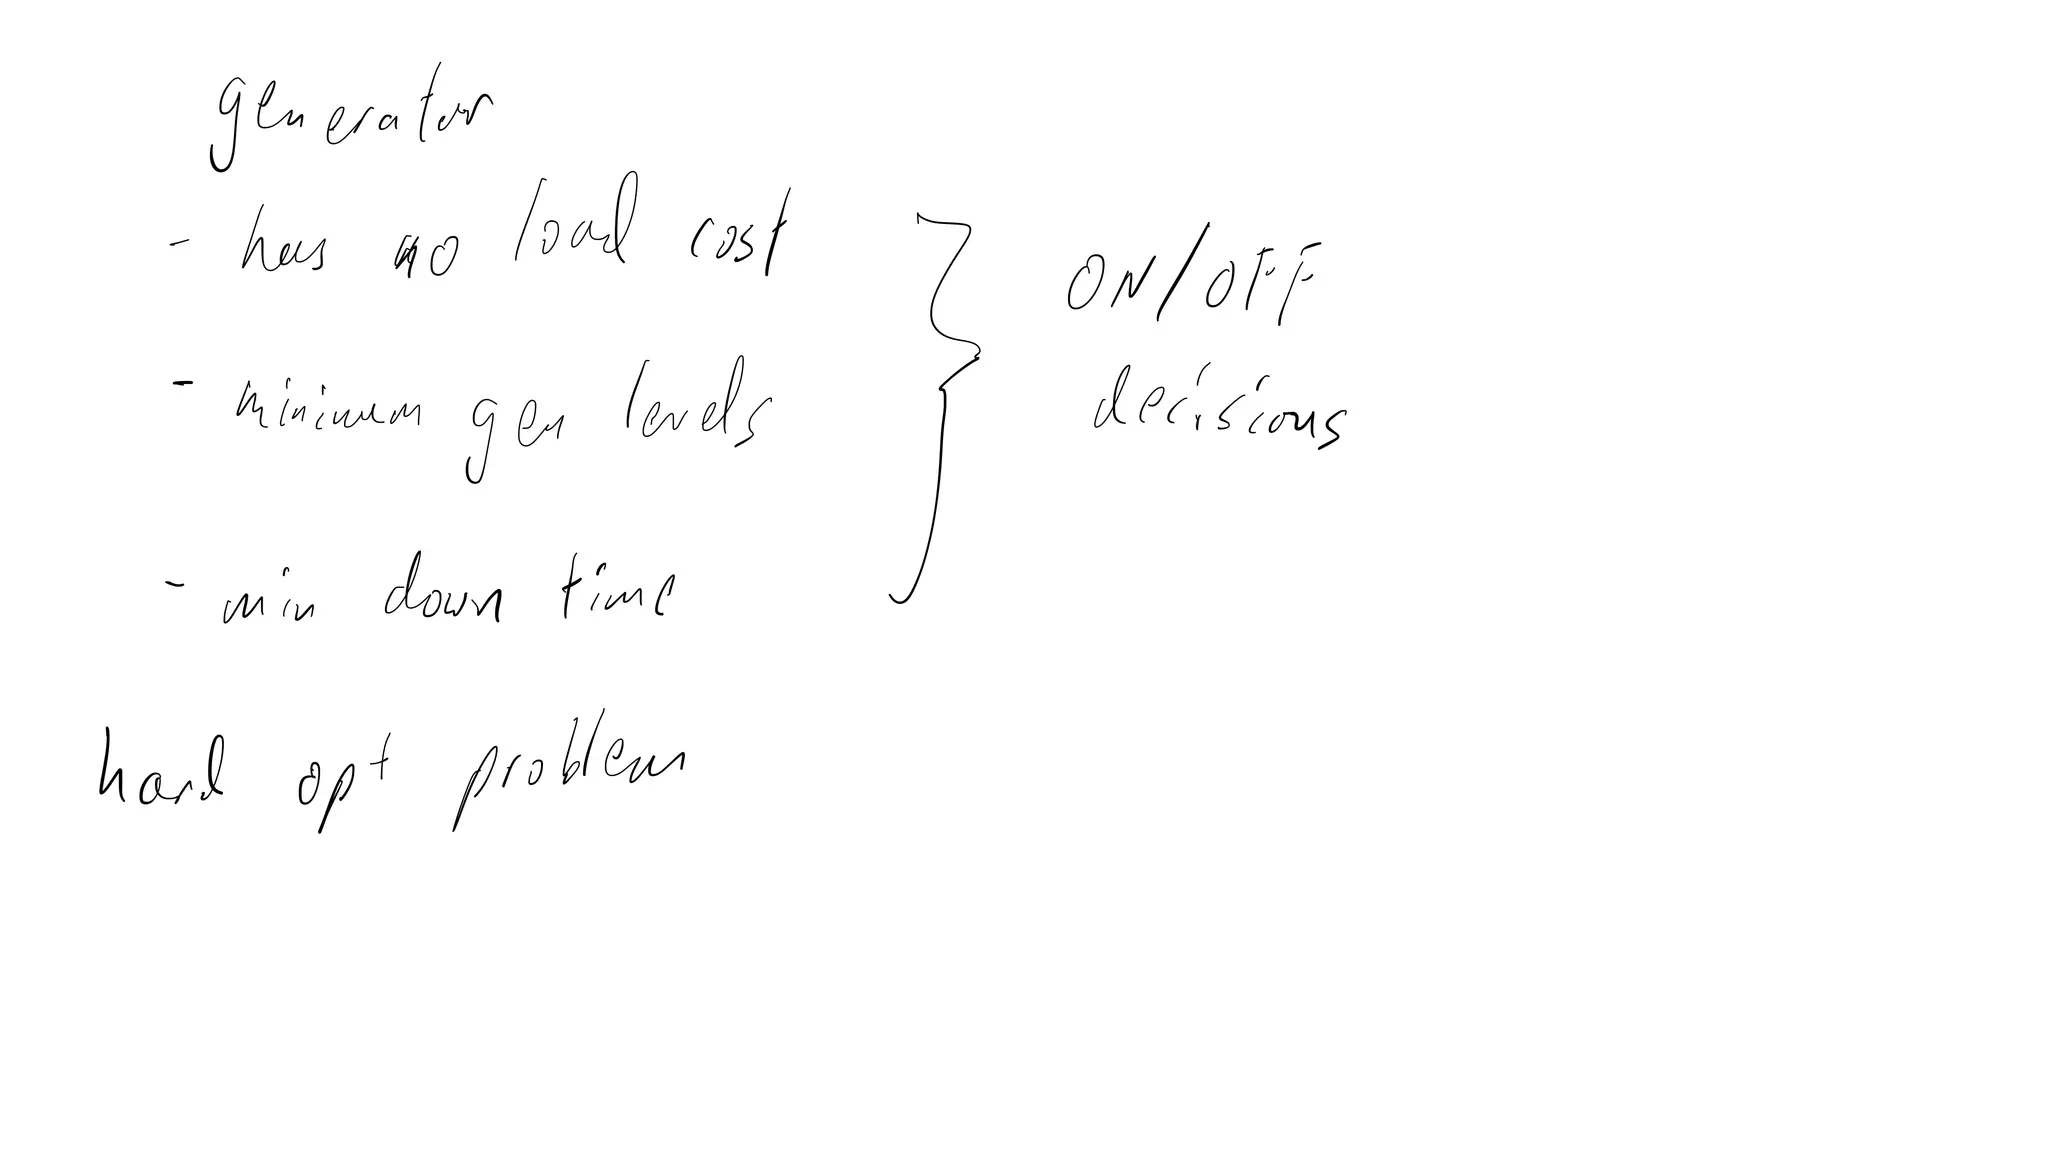 generator
- has no load cost
- minimum gen levels
- min down time
ON/OFF
decisions
hard opt problem